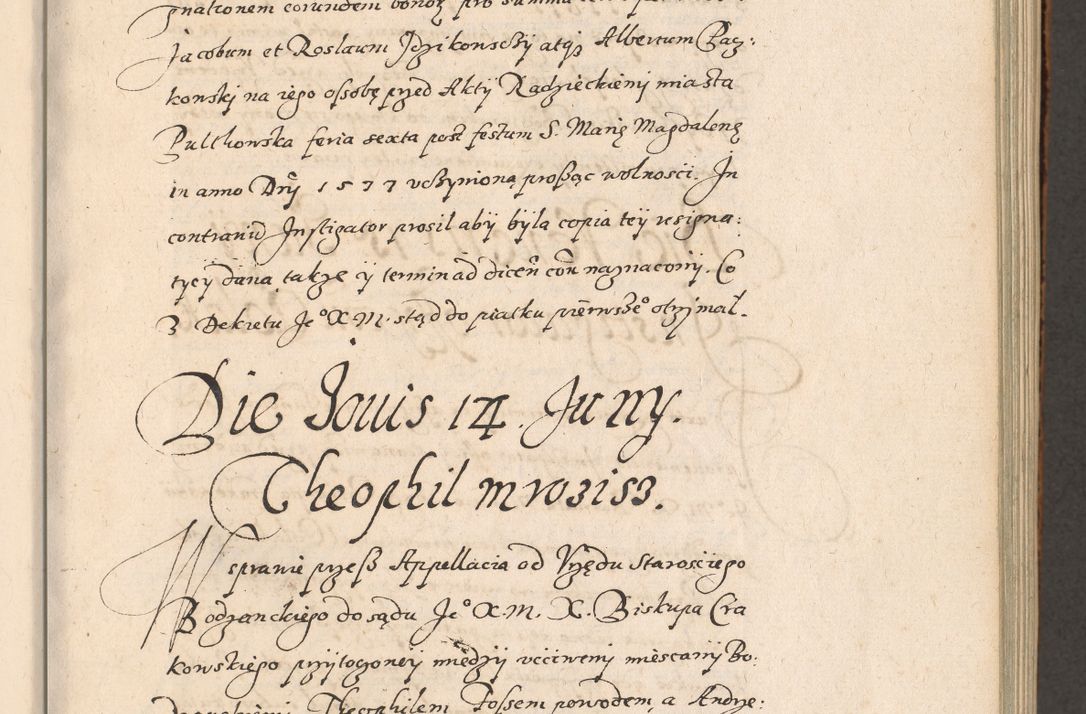 gnationem eorundem bonor pro summa
Jacobum et Roslaum Jdzikonscży atqȝ Albertum Pacz:
konskj na iego ossobę przed Aktÿ Radzieckiemj miasta
Pulthowska feria sexta post festum S. Marię Magdalenę
in anno Dnj 1577 vcżynioną proßąc wolnosci. Jn
contrariū Jnstigator prosil abÿ bÿla copia teÿ resigna:
tÿeÿ dana, także ÿ termin ad dicen̄ con̄ naznaconÿ. Co
z Dekretu Jeº X M. stąd do piatku pierwszeº otrzÿmal.
Die Jouis 14. Junÿ.
Theophil mrozisz.
W sprawie przeß Appellacia od Vrzędu Starosciego
Bodzanckiego do sądu Jeº X. M. X. Biskupa Cra
kowskiego przÿtoczoneÿ międzÿ vcciwemj miescanÿ Bo:
dzanckiemj Theophilem Fossem powodem, a Andrze: